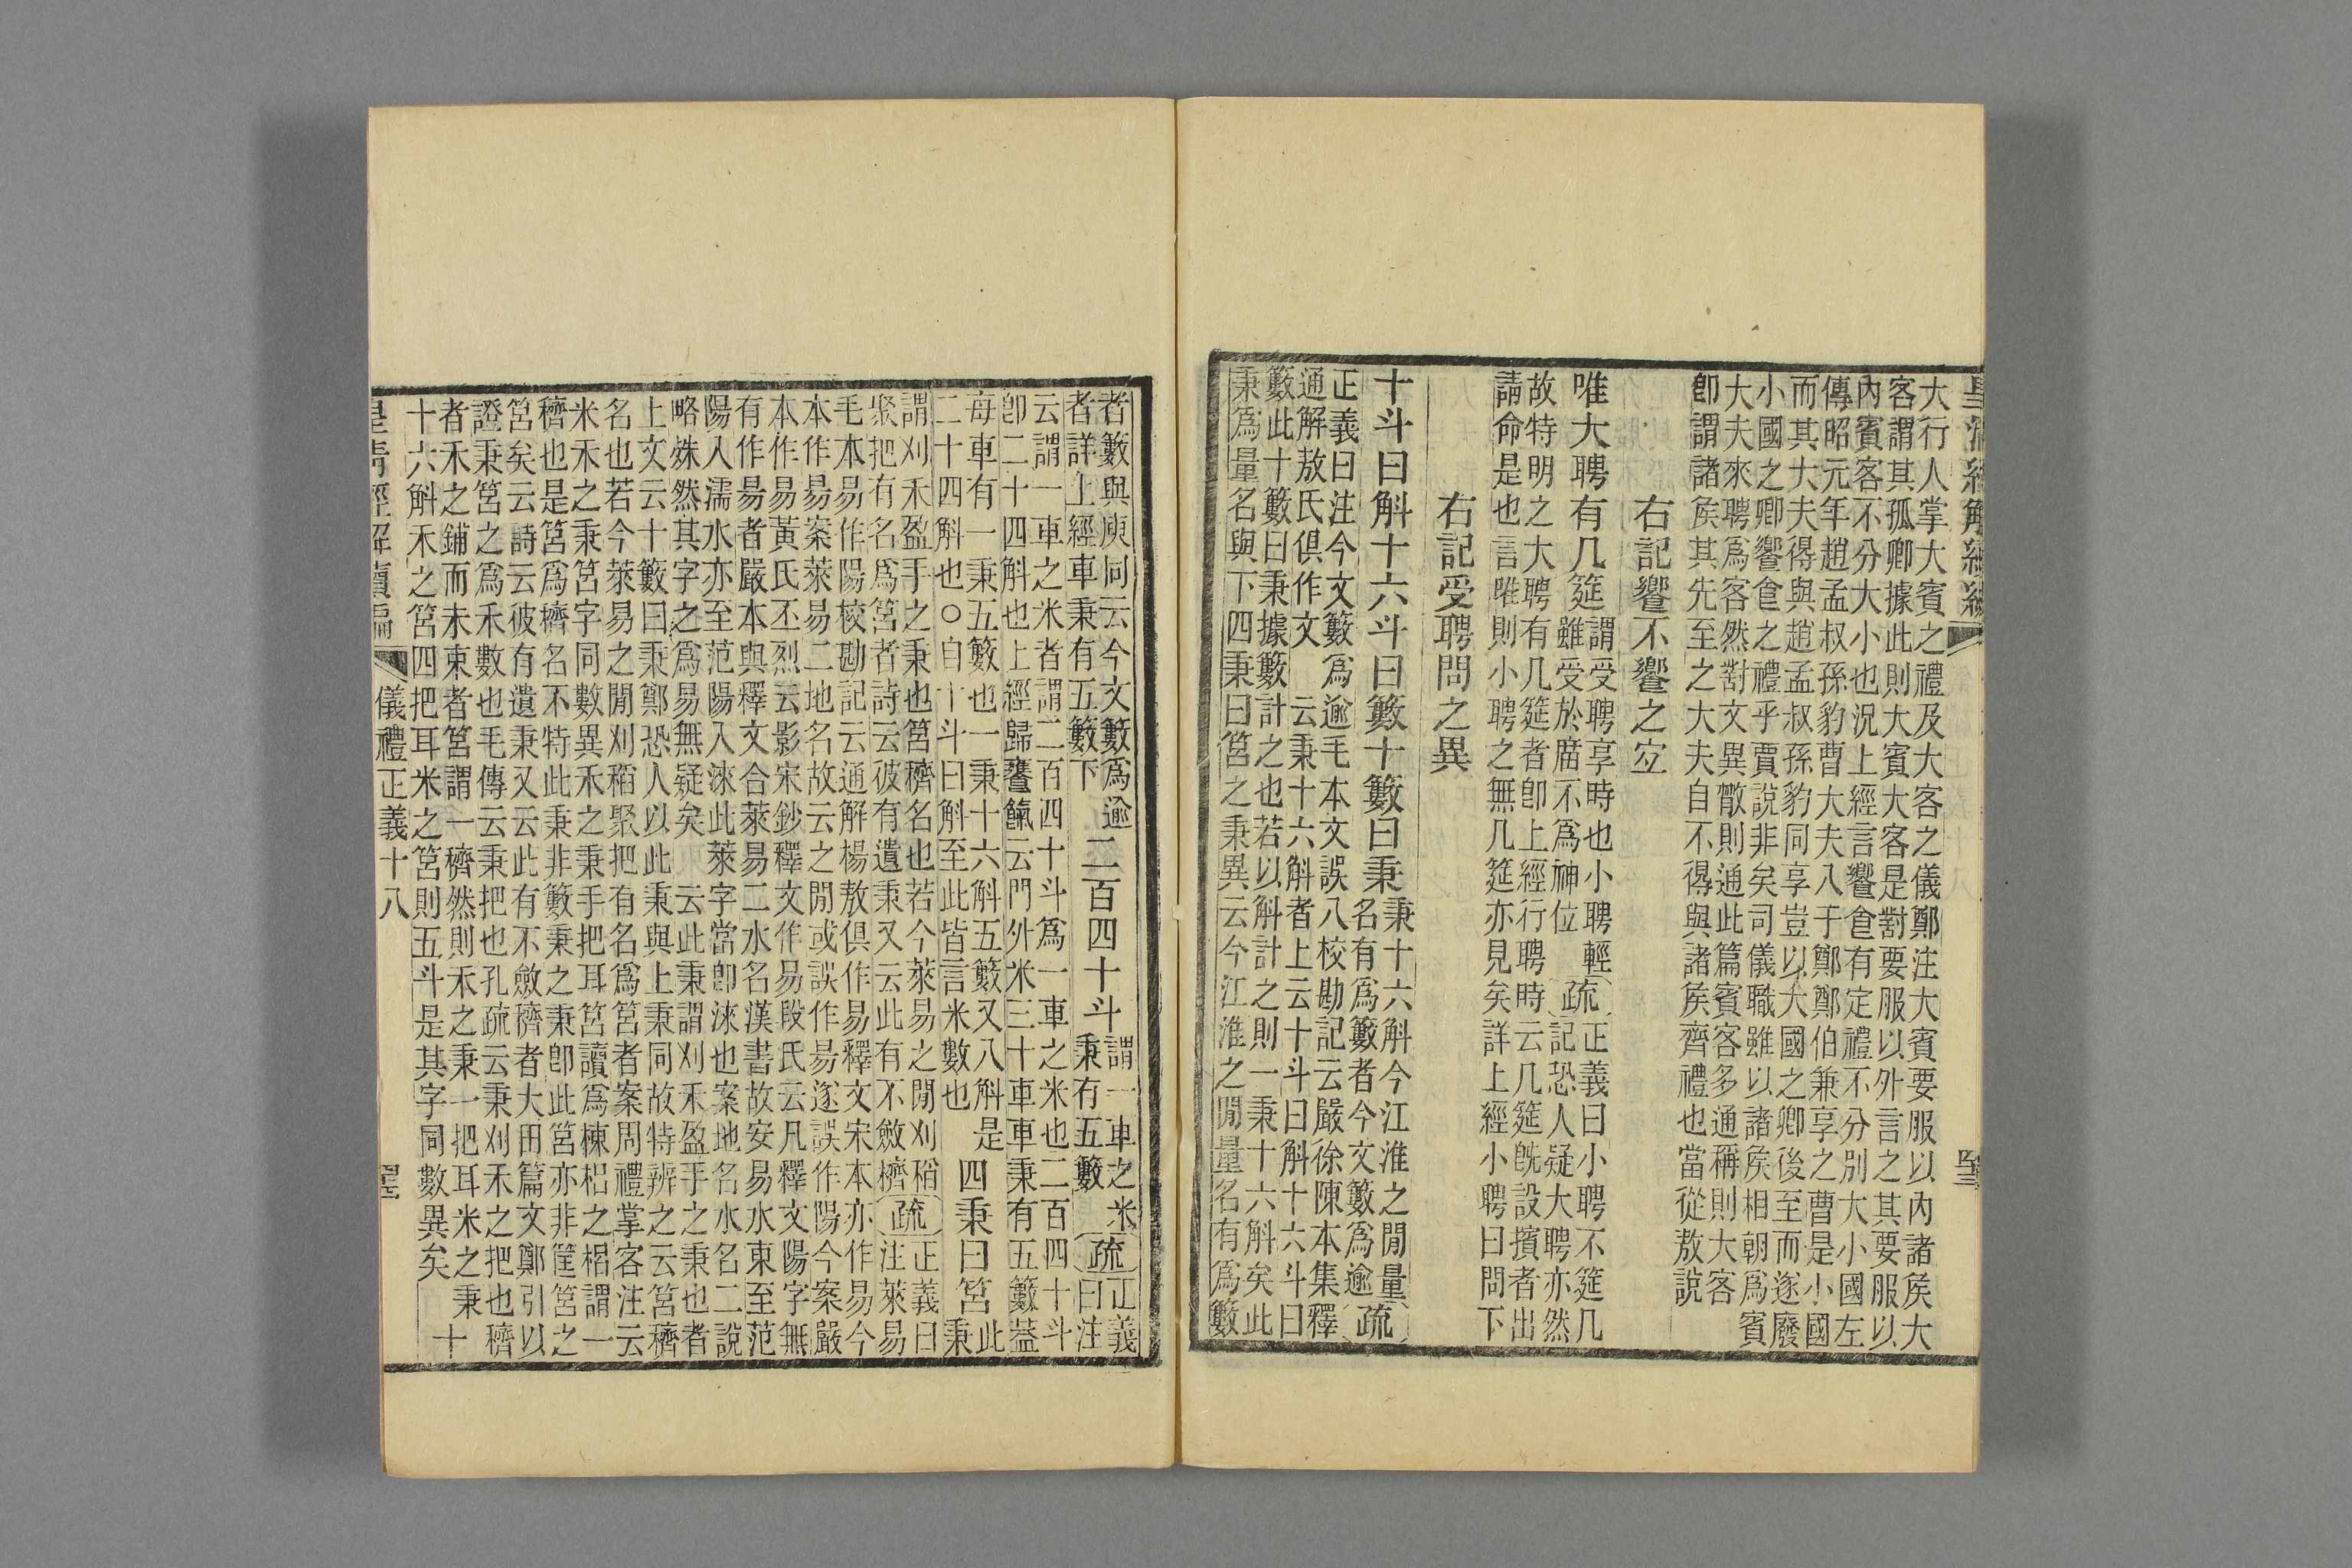 皇清經解續編
大行人掌大賓之禮及大客之儀鄭注大賓要服以內諸矦大
客謂其孤卿據此則大賓大客是對要服以外言之其要服以
內賓客不分大小也況上經言饗食有定禮不分別大小國左
傳昭元年趙孟叔孫豹曹大夫入于鄭鄭伯兼享之曹是小國
而其大夫得與趙孟叔孫豹同享豈以大國之卿後至而遂廢
小國之卿饗食之禮乎賈說非矣司儀職雖以諸矦相朝爲賓
大夫來聘爲客然對文異散則通此篇賓客多通稱則大客
卽謂諸矦其先至之大夫自不得與諸矦齊禮也當從敖說
右記饗不饗之宐
唯大聘有几筵 謂受聘享時也小聘輕雖受於廟不爲神位 疏 正義曰小聘不筵几記恐人疑大聘亦然
故特明之大聘有几筵者卽上經行聘時云几筵旣設擯者出
請命是也言唯則小聘之無几筵亦見矣詳上經小聘曰問下
右記受聘問之異
十斗曰斛十六斗曰籔十籔曰秉 秉十六斛今江淮之閒量名有爲籔者今文籔爲逾 疏
正義曰注今文籔爲逾毛本文誤八校勘記云嚴徐陳本集釋
通解敖氏俱作文 云秉十六斛者上云十斗曰斛十六斗曰
籔此十籔曰秉據籔計之也若以斛計之則一秉十六斛矣此
秉爲量名與下四秉曰筥之秉異云今江淮之閒量名有爲籔
者籔與庾同云今文籔爲逾
者詳上經車秉有五籔下
二百四十斗 謂一車之米秉有五籔 疏 正義曰注
云謂一車之米者謂二百四十斗爲一車之米也二百四十斗
卽二十四斛也上經歸饔餼云門外米三十車車秉有五籔葢
每車有一秉五籔也一秉十六斛五籔又八斛是
二十四斛也○自十斗曰斛至此皆言米數也
四秉曰筥 此秉
謂刈禾盈手之秉也筥穧名也若今萊易之閒刈稻
聚把有名爲筥者詩云彼有遺秉又云此有不斂穧 疏 正義曰注萊易
毛本易作陽校勘記云通解楊敖俱作易釋文宋本亦作易今
本作易案萊易二地名故云之閒或誤作易遂誤作陽今案嚴
本作易黃氏丕烈云影宋鈔釋文作易段氏云凡釋文陽字無
有作易者嚴本與釋文合萊易二水名漢書故安易水東至范
陽入濡水亦至范陽入淶此萊字當卽淶也案地名水名二說
略姝然其字之爲易無疑矣 云此秉謂刈禾盈手之秉也者
上文云十籔曰秉鄭恐人以此秉與上秉同故特辨之云筥穧
名也若今萊易之閒刈稻聚把有名爲筥者案周禮掌客注云
米禾之秉筥字同數異禾之秉手把耳筥讀爲棟梠之梠謂一
穧也是筥爲穧名不特此秉非籔秉之秉卽此筥亦非筐筥之
筥矣云詩云彼有遺秉又云此有不斂穧者大田篇文鄭引以
證秉筥之爲禾數也毛傳云秉把也孔疏云秉刈禾之把也穧
者禾之鋪而未束者筥謂一穧然則禾之秉一把耳米之秉
十六斛禾之筥四把耳米之筥則五斗是其字同數異矣
十
皇清經解續編 儀禮正義十八